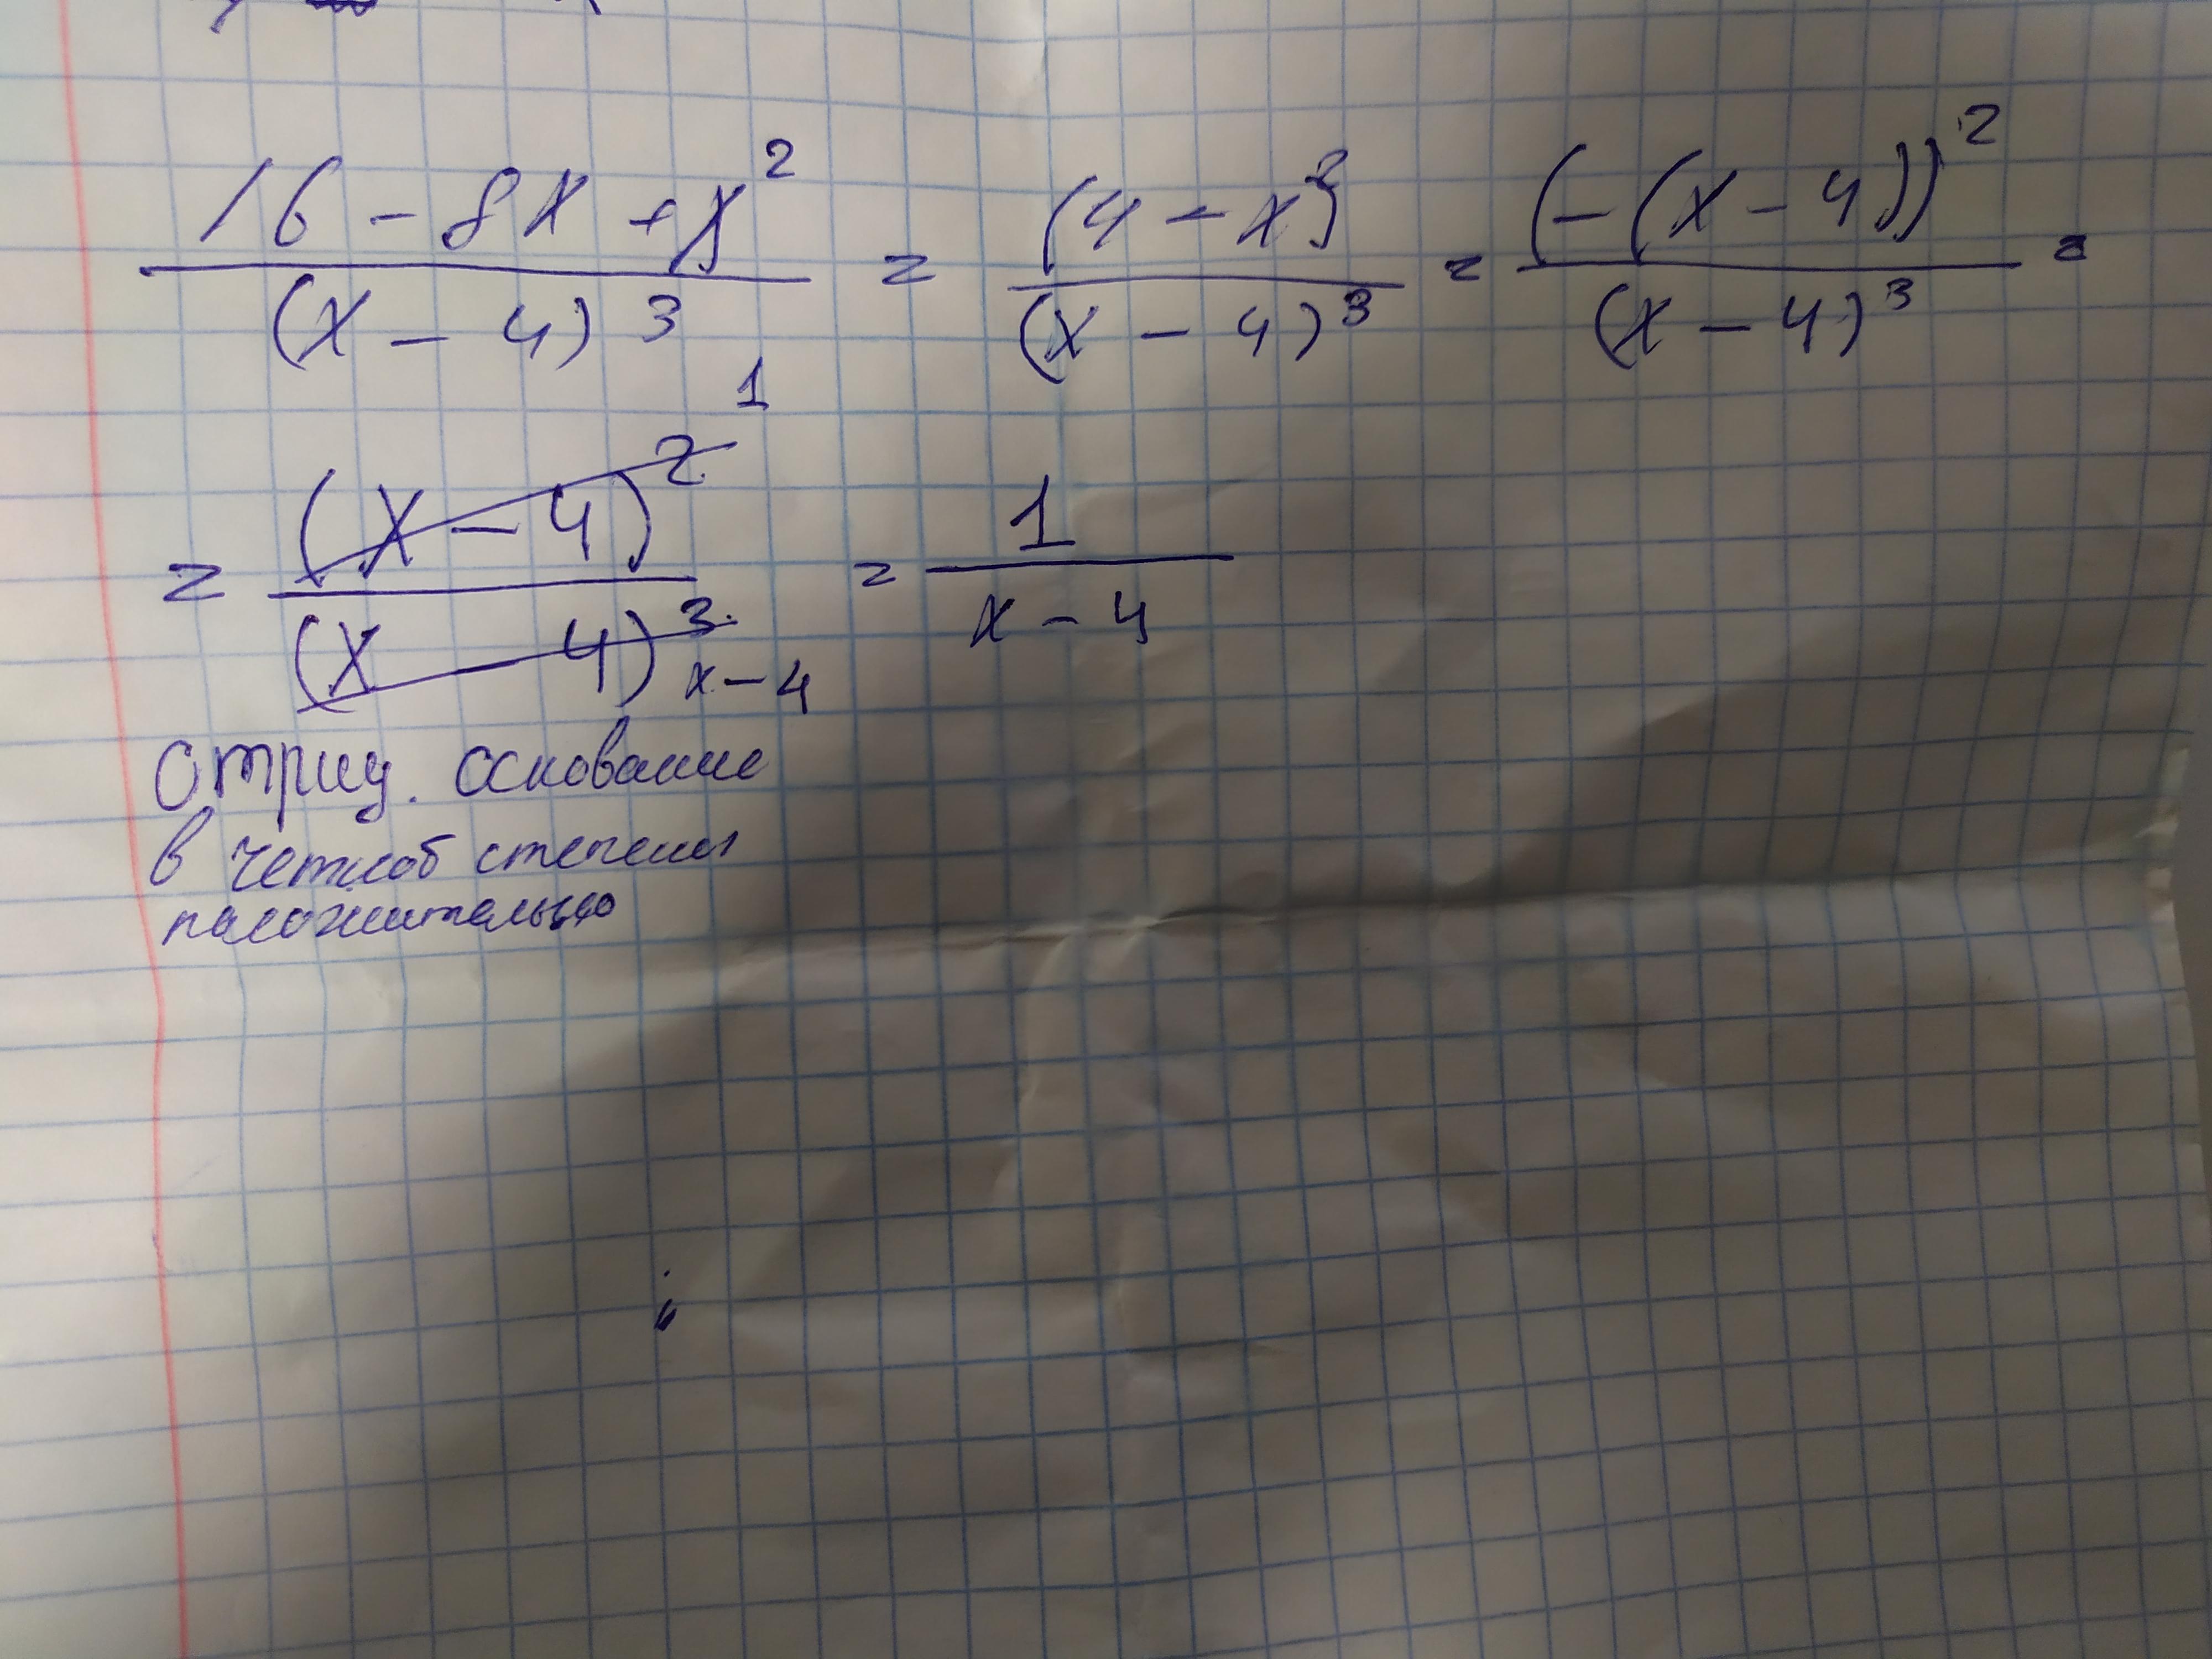 (16 - 8x + x²)/(x - 4)³ = (4 - x)²/(x - 4)³ = (-(x - 4))²/(x - 4)³ =
= (x - 4)² 1/(x - 4)³ x - 4 = 1/(x - 4)
отриц. основание
в четной степени
положительно